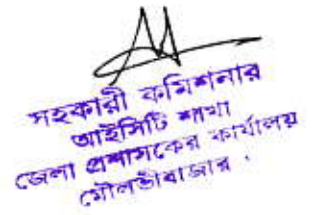 সহকারী কমিশনার
আইসিটি শাখা
জেলা প্রশাসকের কার্যালয়
মৌলভীবাজার।